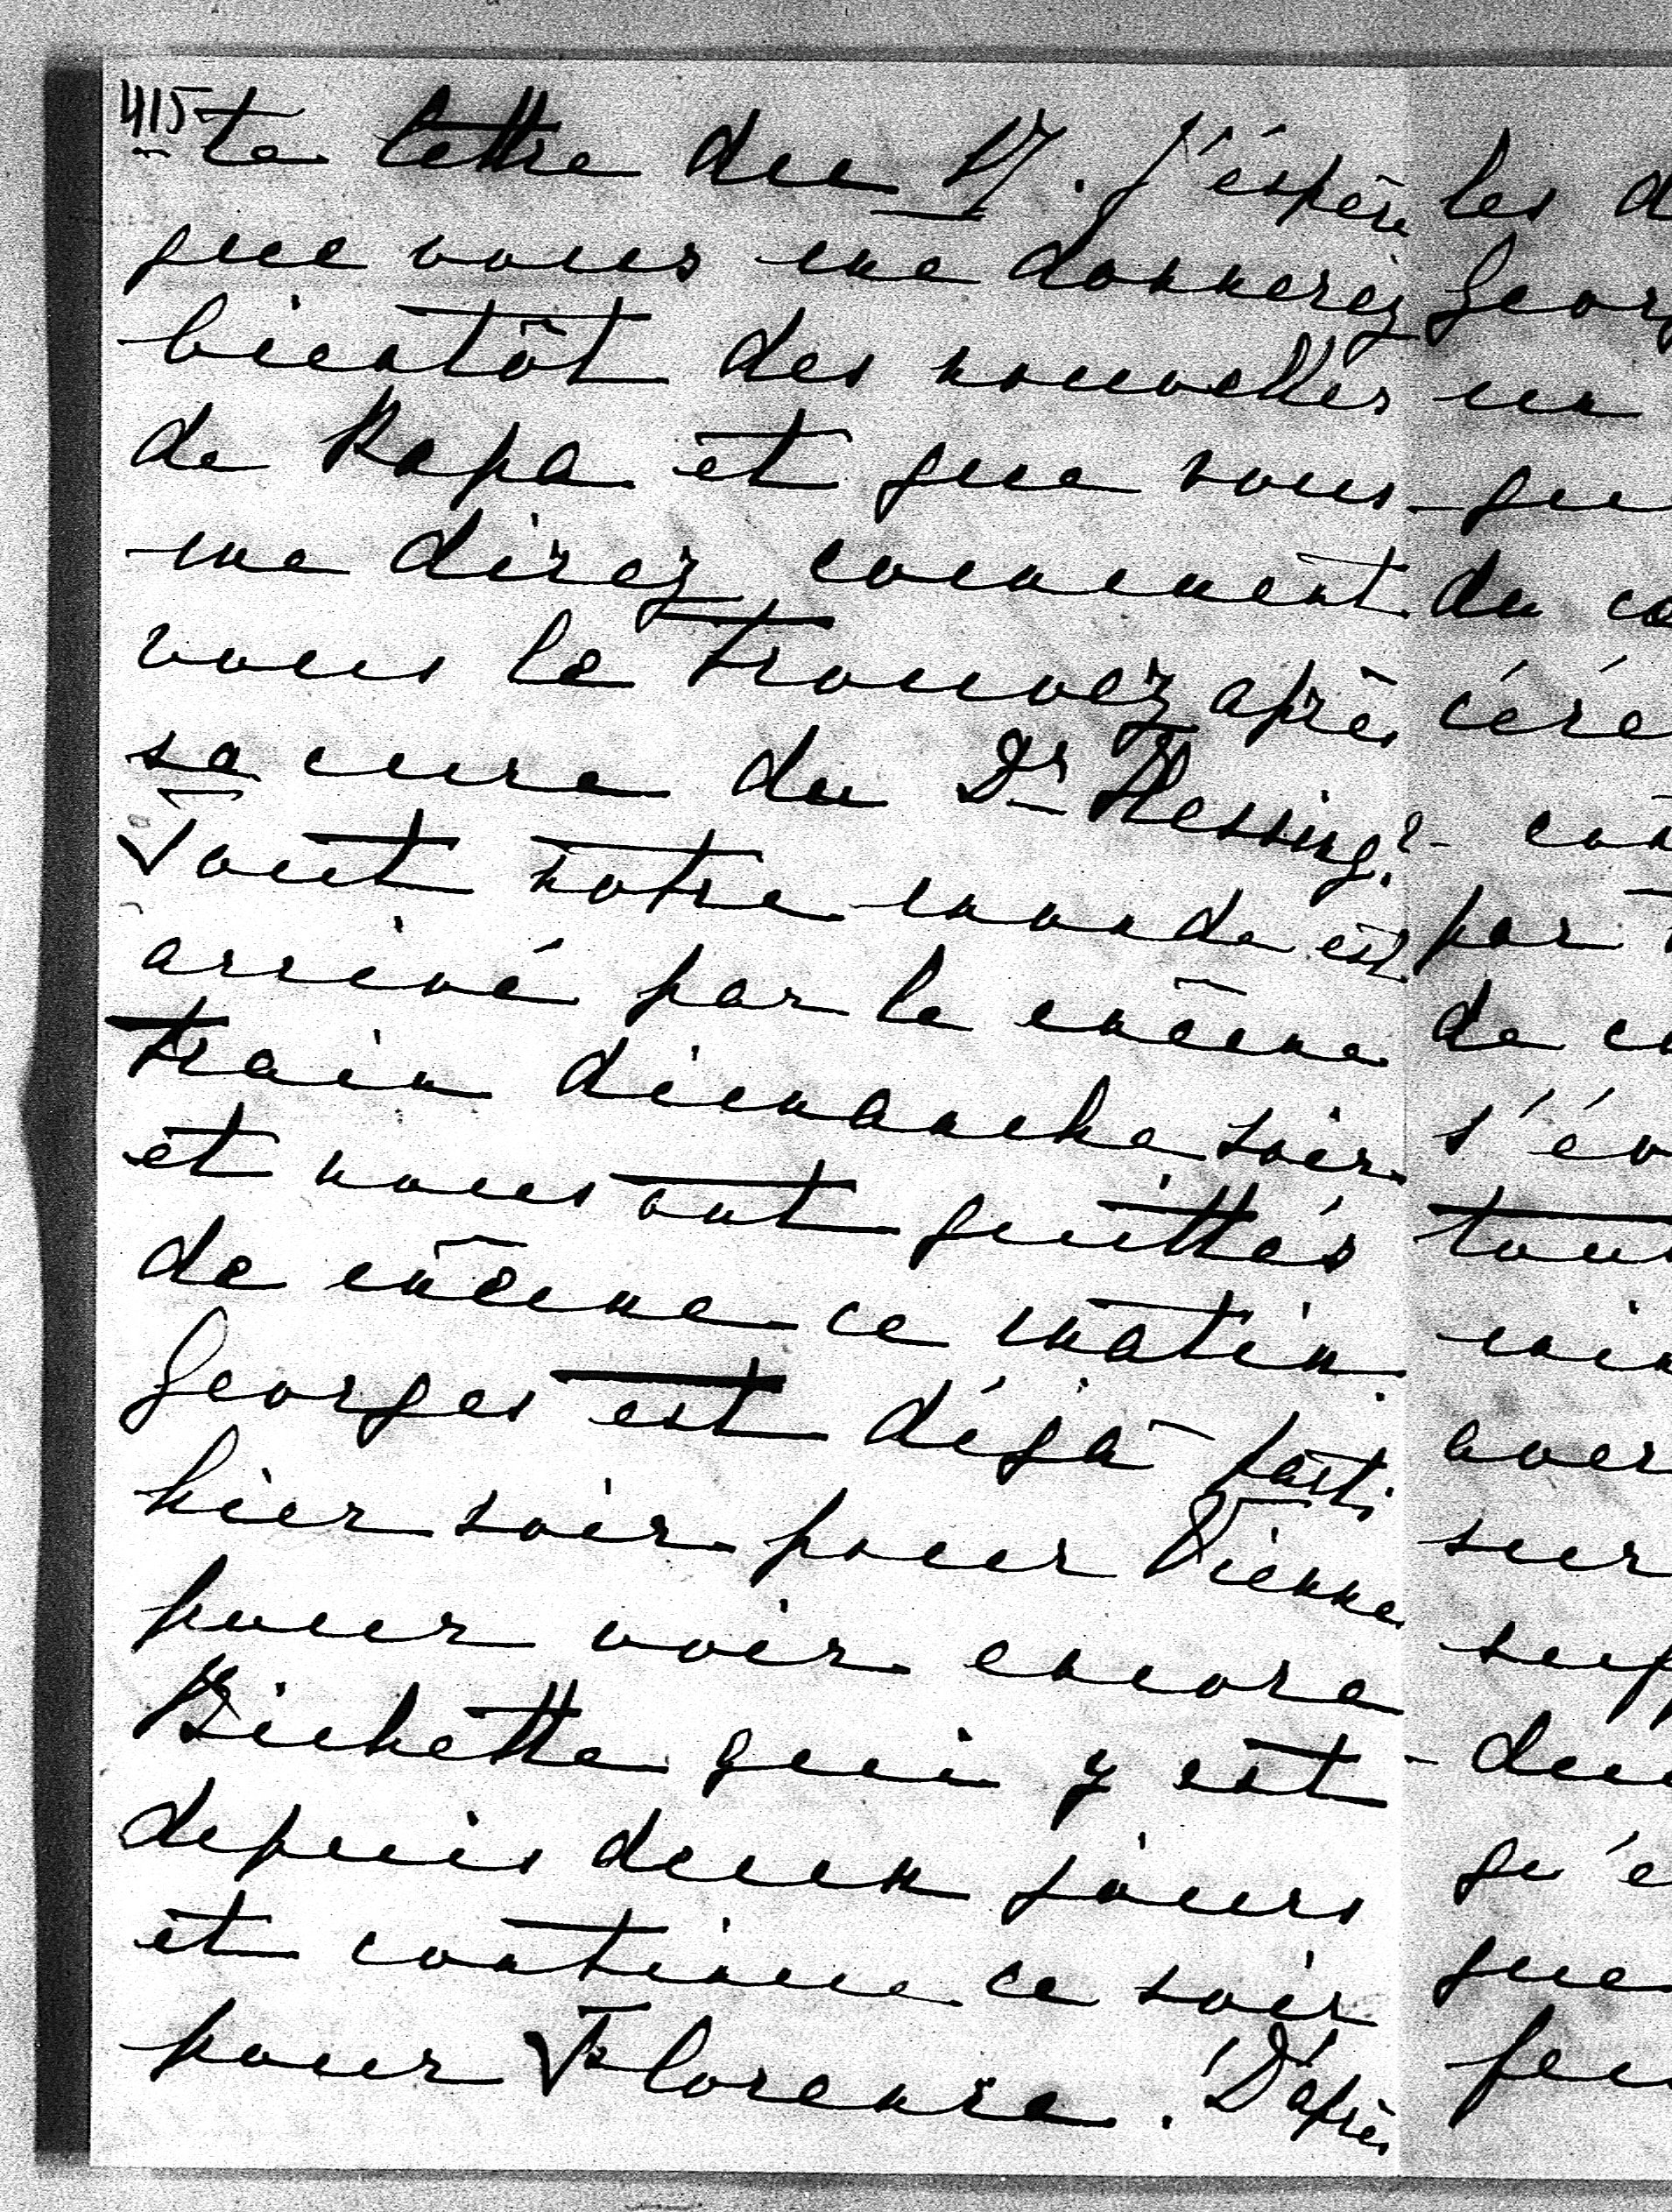 415
ta lettre du 17. J'espère
que vous me donnerez
bientôt des nouvelles
de Papa et que vous
me direz comment
vous le trouvez après
sa cure du Dr Hessing?
Tout notre monde est
arrivé par le même
train dimanche soir
et nous ont quittés
de même ce matin.
Georges est déjà parti
hier soir pour Vienne
pour voir encore
Bichette qui y est
depuis deux jours
et continue ce soir
pour Florence. D'après
les d
Georg
un
que
du co
céré
con
par
de c
s'év
tous
min
aver
sur
sup
deu
qu'e
que
peu